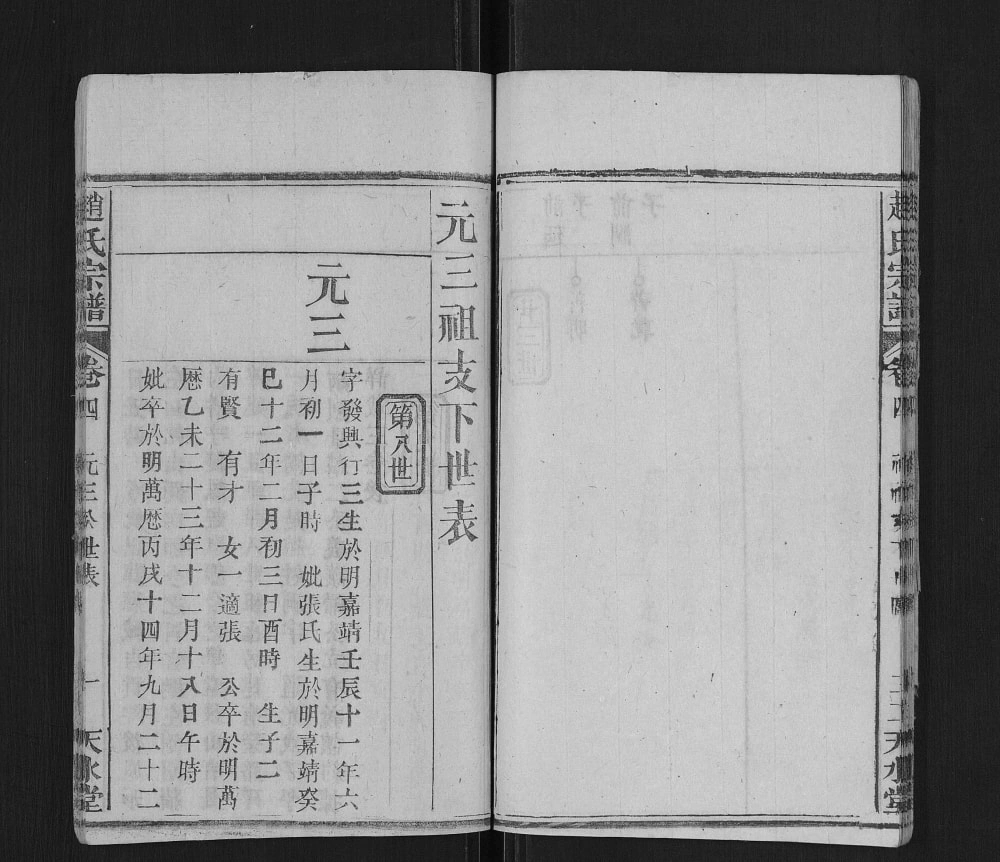 趙氏宗譜
卷四
天水堂
元三祖支下世表
第八世
元三
字發興行三生於明嘉靖壬辰十一年六
月初一日子時 妣張氏生於明嘉靖癸
巳十二年二月初三日酉時 生子二
有賢 有才 女一適張 公卒於明萬
曆乙未二十三年十二月十八日午時
妣卒於明萬曆丙戌十四年九月二十二
趙氏宗譜
卷四
元三公世表
一
天水堂